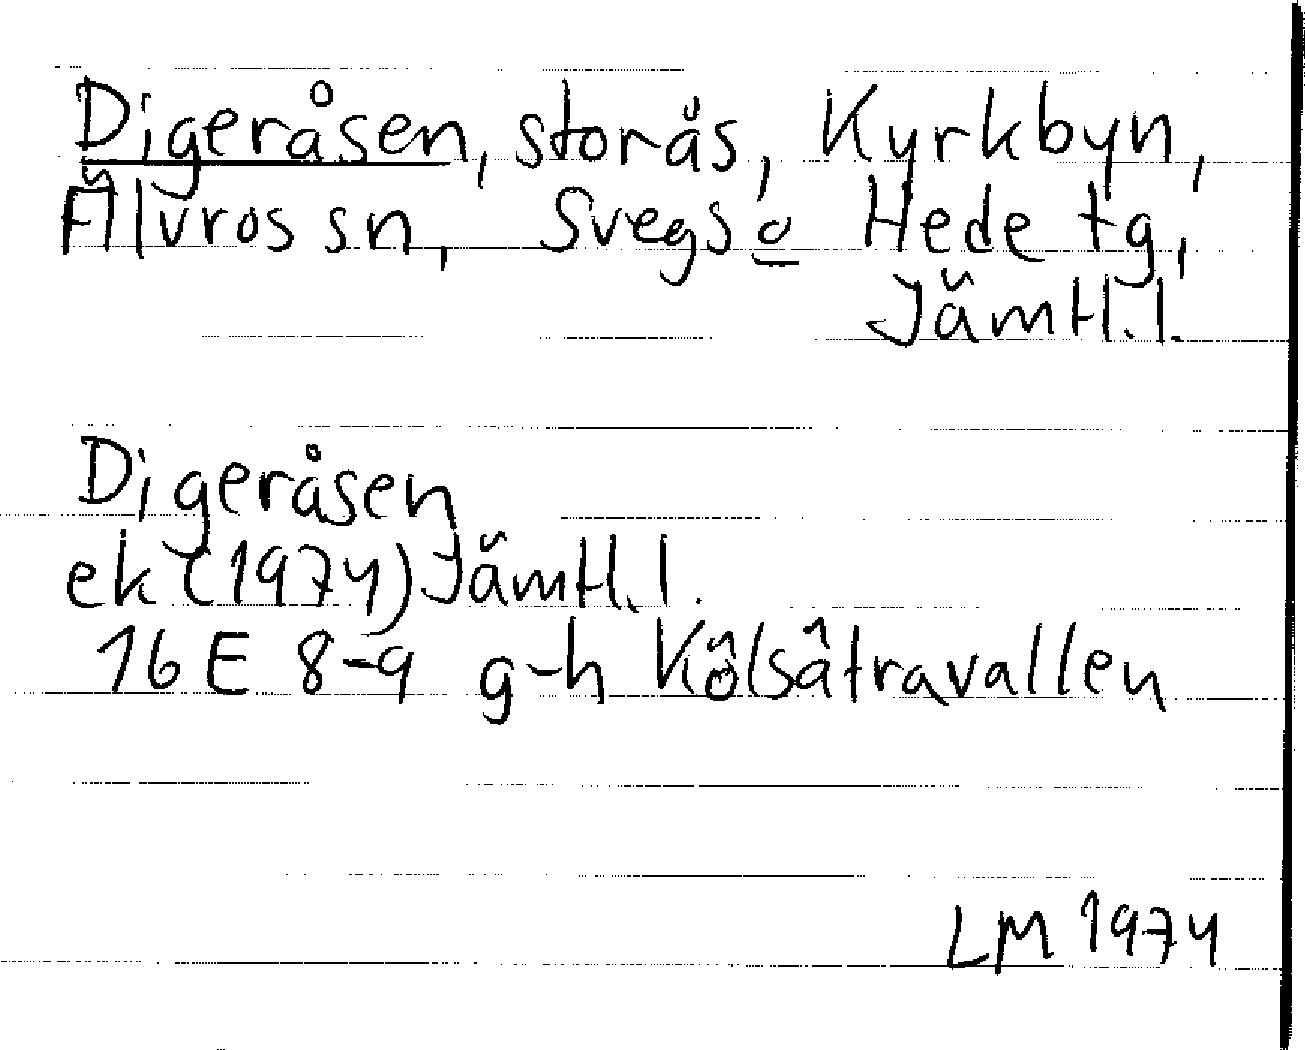 Digeråsen, storås, Kyrkbyn,
Älvros sn, Svegs o Hede tg,
Jämtl.l.
Digeråsen
ek (1974) Jämtl.l.
16 E 8-9 g-h Kölsätravallen
LM 1974